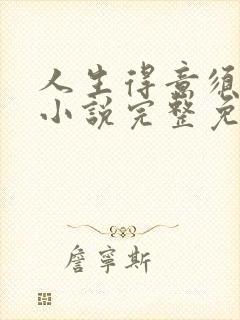 人生得意須
小說完整免
詹寧斯